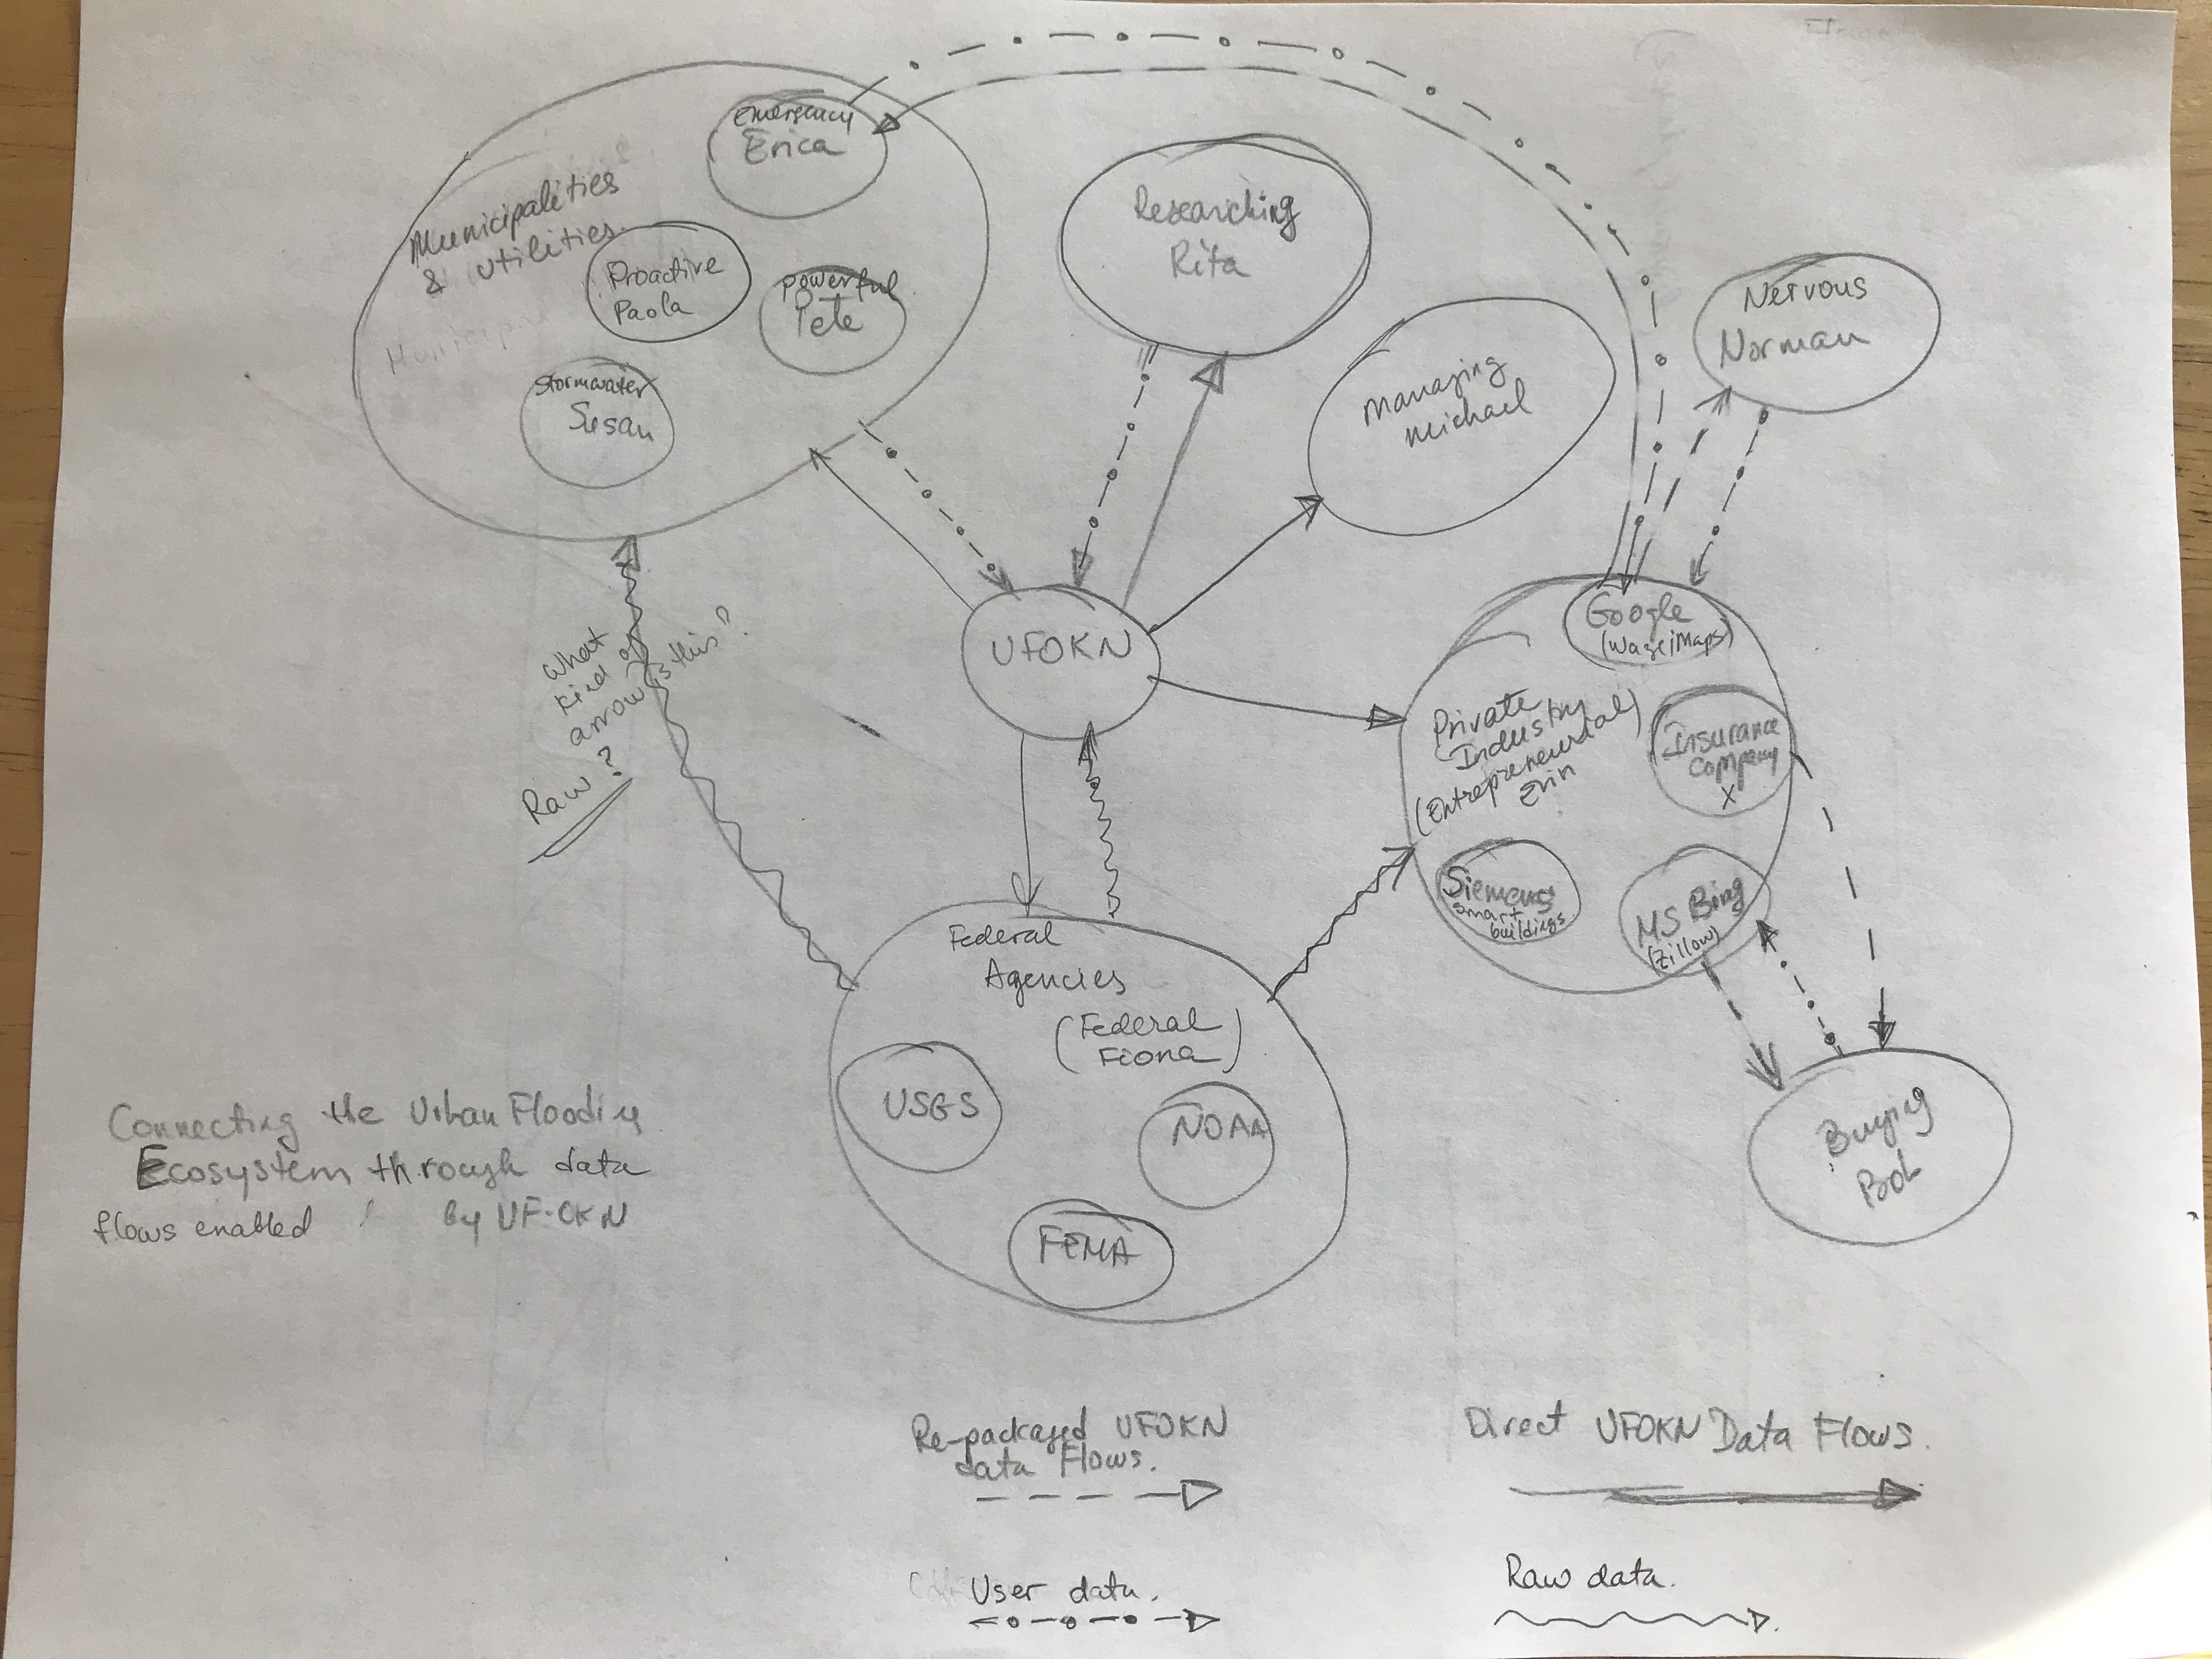 Emergency
Erica
Municipalities
& utilities
Municipal
Proactive
Paola
Powerful
Pete
Stormwater
Susan
Researching
Rita
Managing
Michael
Nervous
Norman
UFOKN
Google
(Waze/Maps)
Private
Industry
(Entrepreneurial)
Erin
Insurance
Company
X
Siemens
smart
buildings
MS Bing
(Zillow)
What
kind of
arrow is this?
Raw?
Federal
Agencies
(Federal
Fiona)
USGS
NOAA
FEMA
Buying
Bob
Connecting the Urban Flooding
Ecosystem through data
flows enabled by UF-OKN
Re-packaged UFOKN
data Flows.
Direct UFOKN Data Flows.
User data.
Raw data.